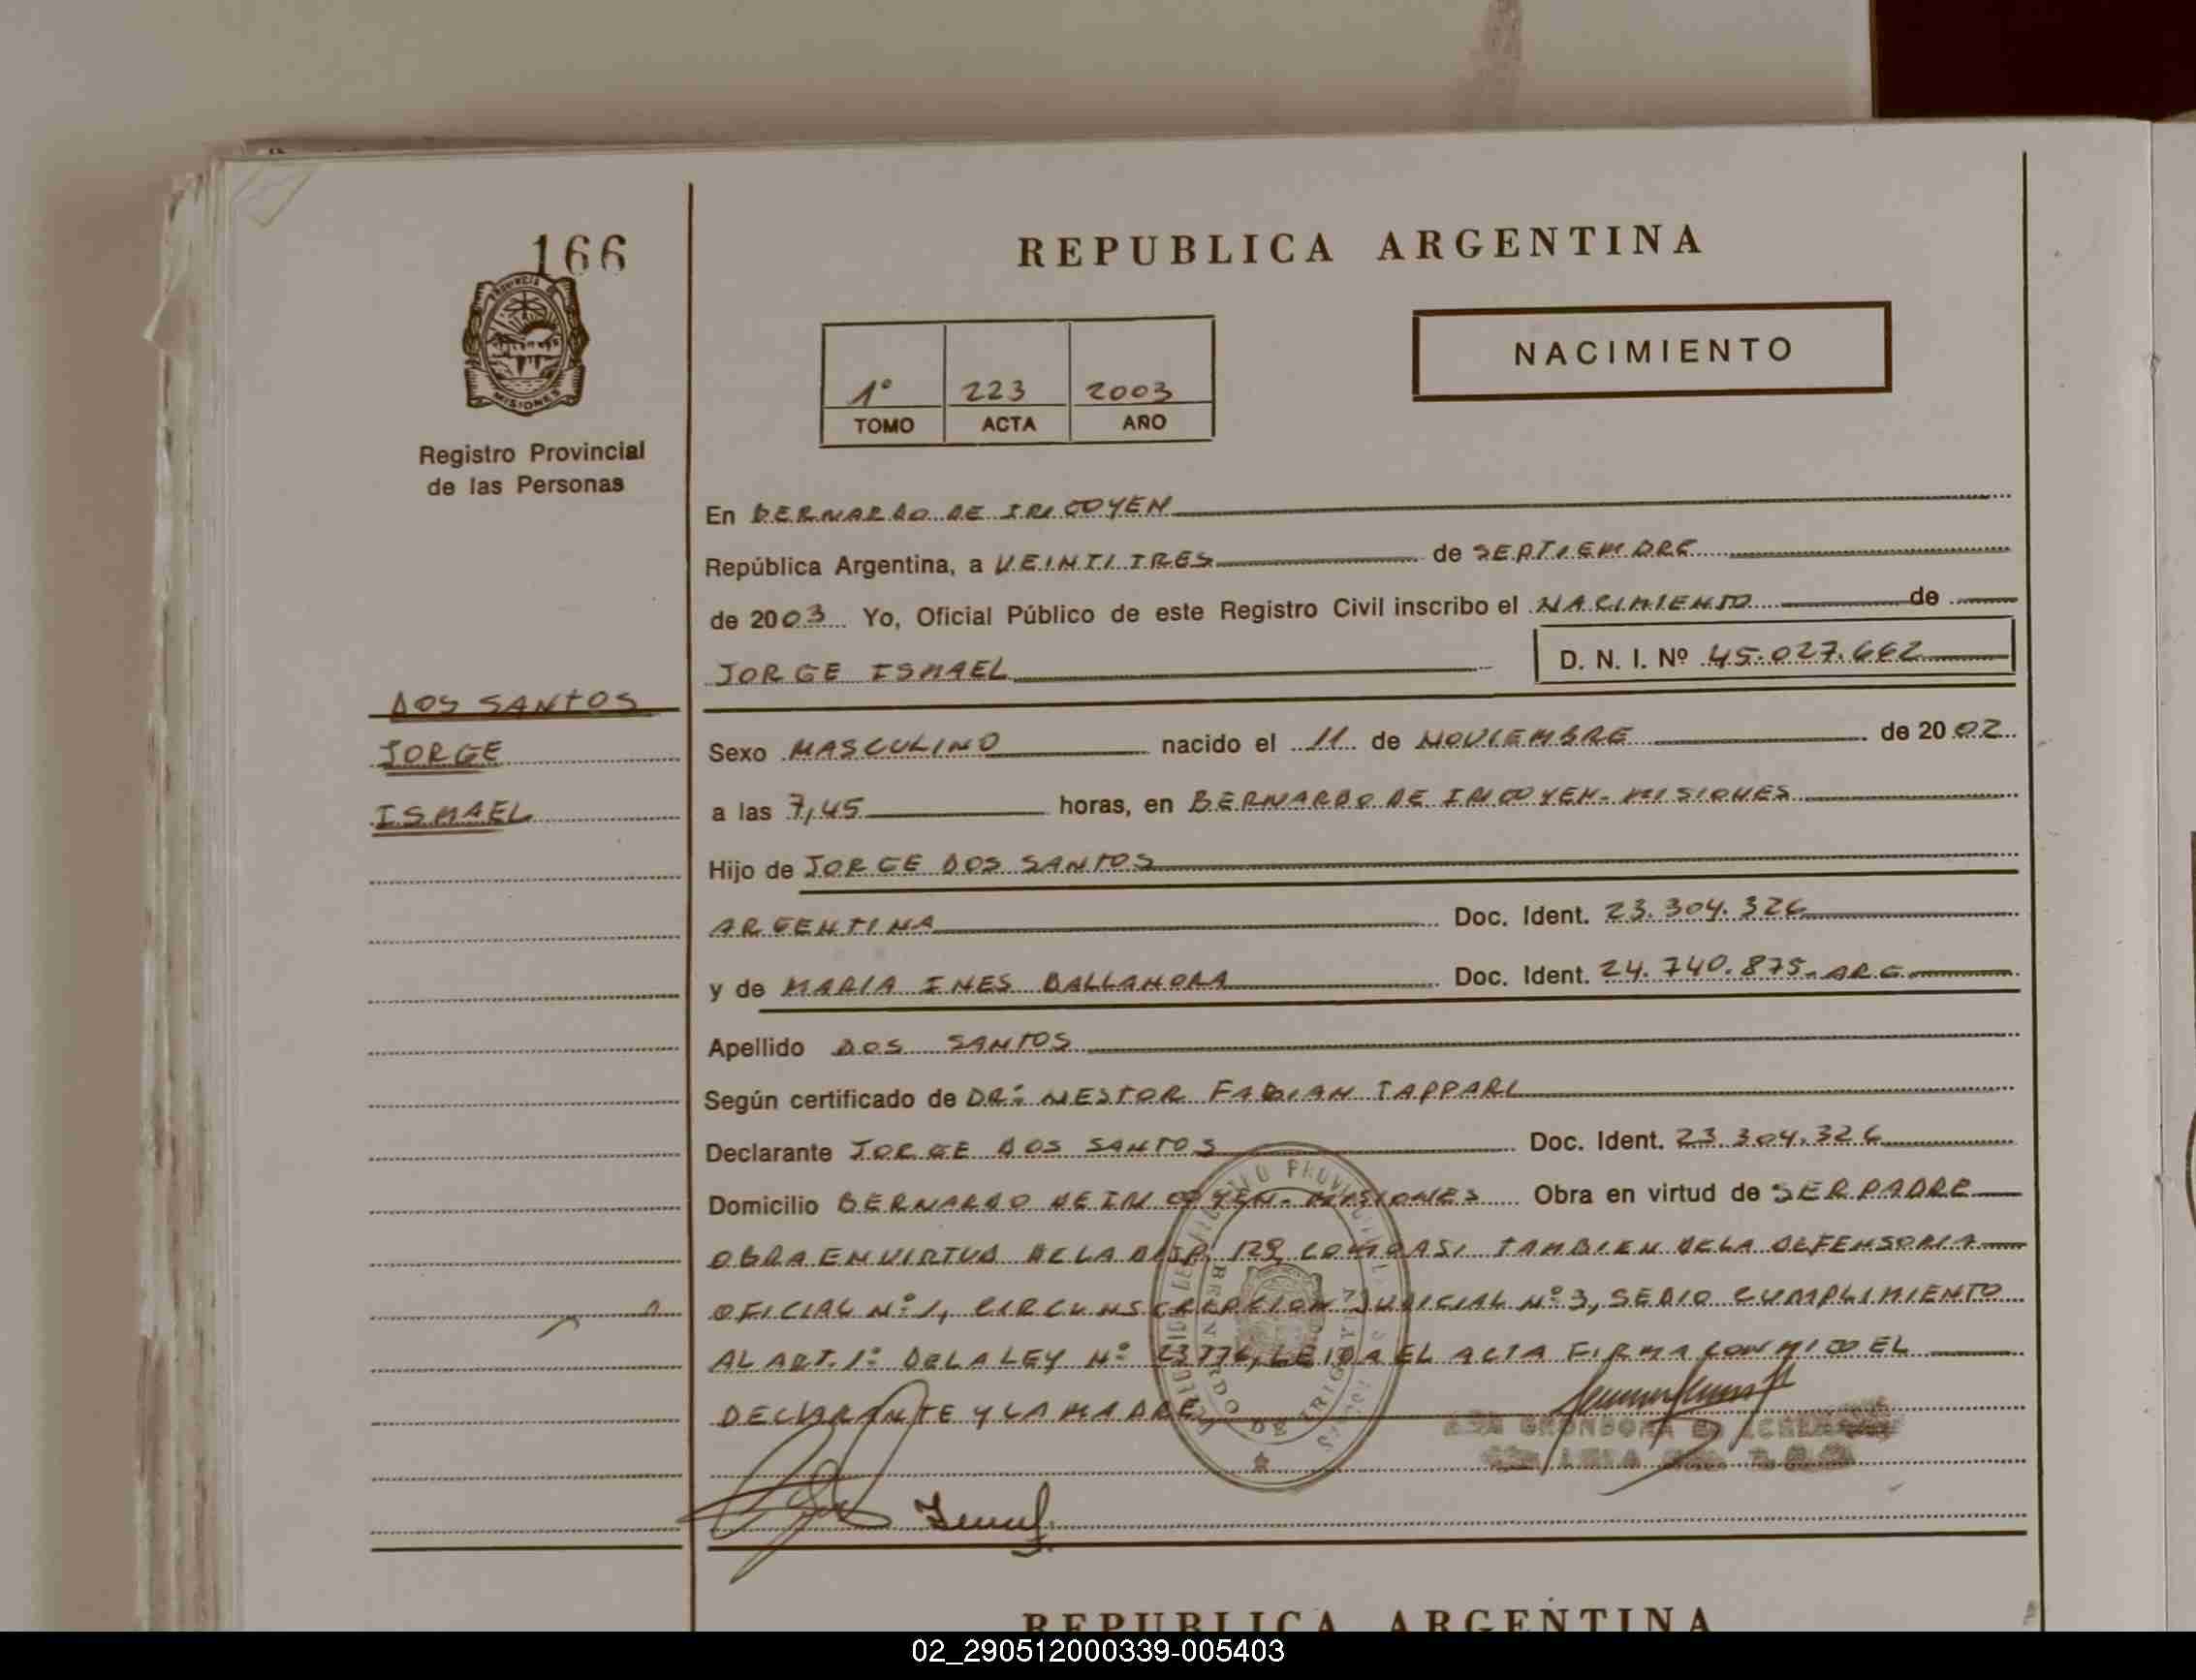 166
PROVINCIA DE
MISIONES
Registro Provincial
de las Personas
REPUBLICA ARGENTINA
NACIMIENTO
1º 223 2003
TOMO ACTA AÑO
En BERNARDO DE IRIGOYEN
República Argentina, a VEINTITRES de SEPTIEMBRE
de 2003 Yo, Oficial Público de este Registro Civil inscribo el NACIMIENTO de
JORGE ISMAEL D. N. I. Nº 45.027.662
DOS SANTOS
JORGE
ISMAEL
Sexo MASCULINO nacido el 11 de NOVIEMBRE de 2002
a las 7,45 horas, en BERNARDO DE IRIGOYEN - MISIONES
Hijo de JORGE DOS SANTOS
ARGENTINA Doc. Ident. 23.304.326
y de MARIA INES BALLANORA Doc. Ident. 24.740.875. ARG
Apellido DOS SANTOS
Según certificado de DR: NESTOR FABIAN TAPPARI
Declarante JORGE DOS SANTOS Doc. Ident. 23.304.326
Domicilio BERNARDO DE IRIGOYEN - MISIONES Obra en virtud de SER PADRE
OBRA EN VIRTUD DE LA DISP. 129 COMO ASI TAMBIEN DE LA DEFENSORIA
OFICIAL Nº 1, CIRCUNSCRIPCION JUDICIAL Nº 3, SE DIO CUMPLIMIENTO
AL ART. 1º DE LA LEY Nº 23776, LEIDA EL ACTA FIRMA CONMIGO EL
DECLARANTE Y LA MADRE
REPUBLICA ARGENTINA
02_290512000339-005403